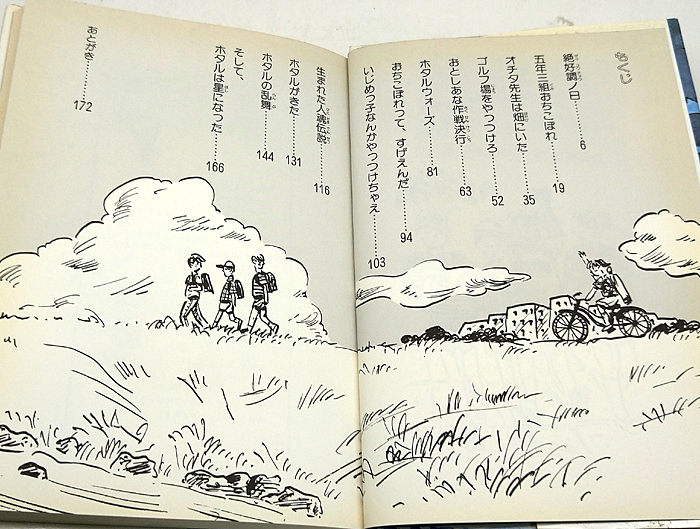 もくじ
絶好調ノ日……… 6
五年三組おちこぼれ……… 19
オチタ先生は畑にいた……… 35
ゴルフ場をやっつけろ……… 52
おとしあな作戦決行……… 63
ホタルウォーズ……… 81
おちこぼれって、すげえんだ……… 94
いじめっ子なんかやっつけちゃえ……… 103
生まれた人魂伝説……… 116
ホタルがきた……… 131
ホタルの乱舞……… 144
そして、
ホタルは星になった……… 166
あとがき……… 172